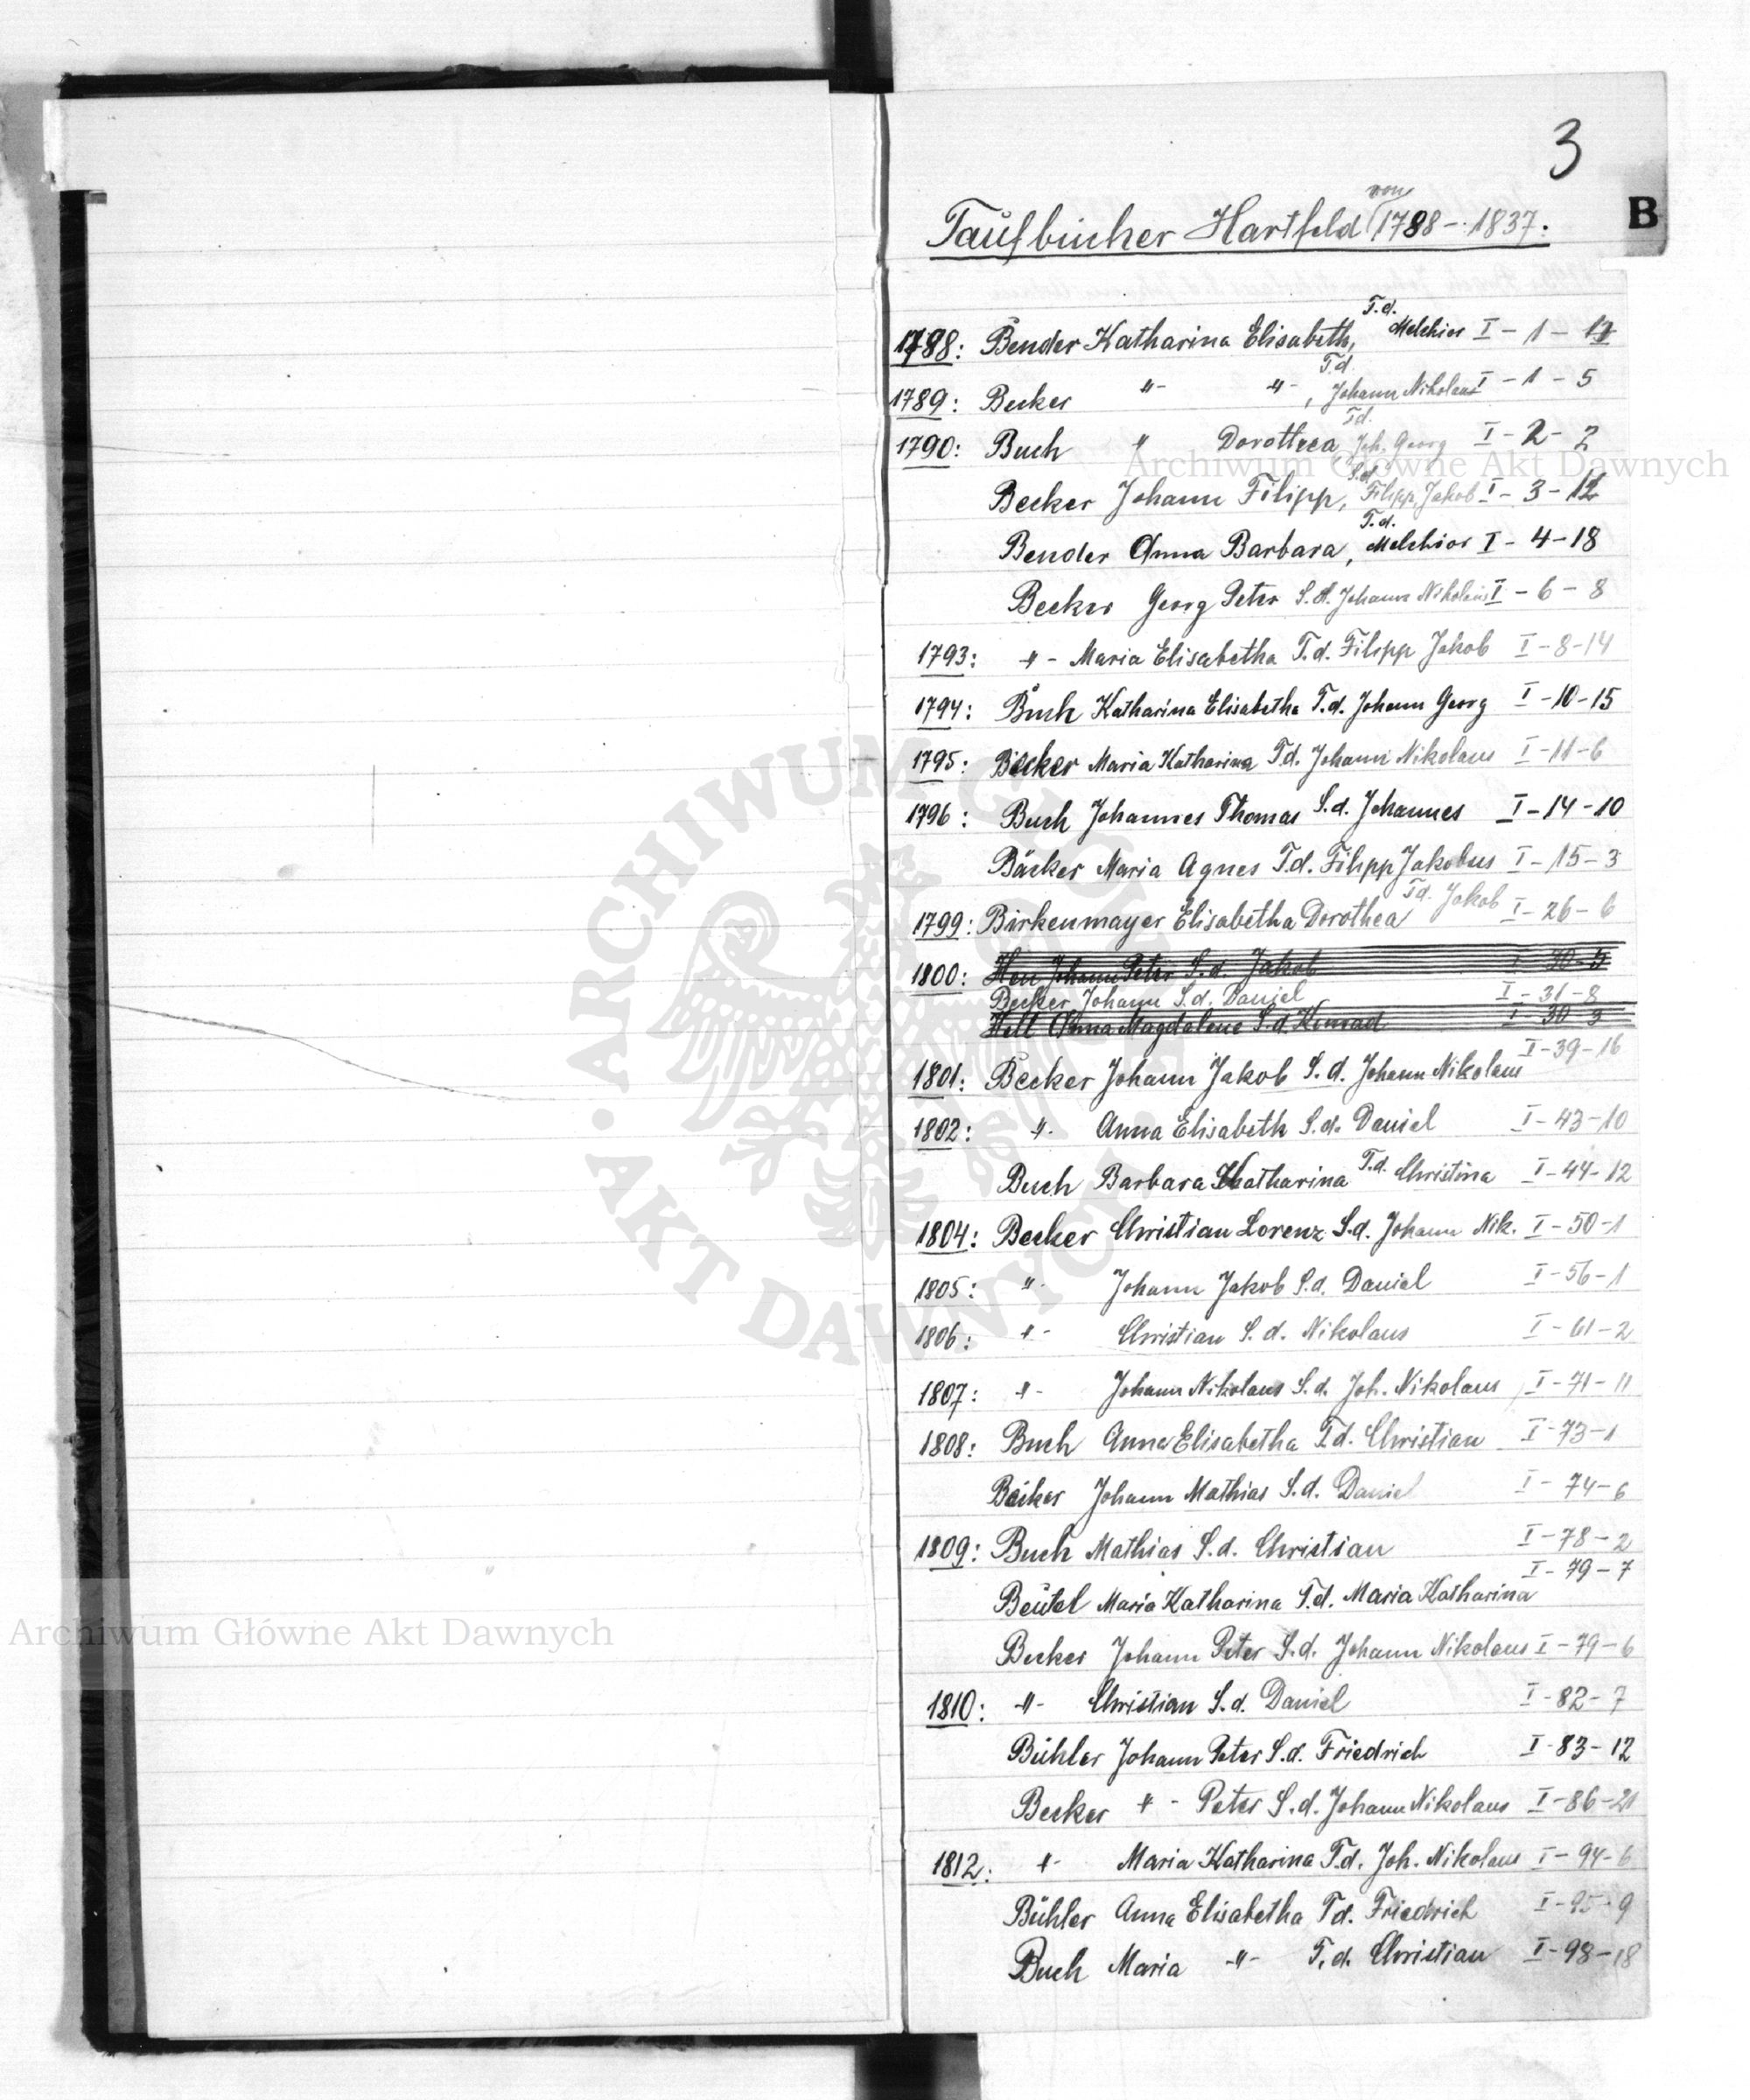 3
B
Taufbücher Hartfeld von 1788 - 1837.
1788: Bender Katharina Elisabeth, T.d. Melchior I - 1 -
1789: Becker -"- -"-, T.d. Johann Nikolaus I - 1 - 5
1790: Buch " Dorothea T.d. Joh. Georg I - 2 - 2
Becker Johann Filipp, S.d. Filipp Jakob I - 3 - 12
Bender Anna Barbara, T.d. Melchior I - 4 - 18
Becker Georg Peter S.d. Johann Nikolaus I - 6 - 8
1793: -"- Maria Elisabetha T.d. Filipp Jakob I - 8 - 14
1794: Buch Katharina Elisabetha T.d. Johann Georg I - 10 - 15
1795: Becker Maria Katharina T.d. Johann Nikolaus I - 11 - 6
1796: Buch Johannes Thomas S.d. Johannes I - 14 - 10
Bäcker Maria Agnes T.d. Filipp Jakobus I - 15 - 3
1799: Birkenmayer Elisabetha Dorothea T.d. Jakob I - 26 - 6
1800: Johann Peter S.d. Jakob I - 30 - 5
Becker Johann S.d. Daniel I - 31 - 8
Hell Anna Magdalene S.d. Konrad I - 30 - 3
1801: Becker Johann Jakob S.d. Johann Nikolaus I - 39 - 16
1802: -"- Anna Elisabeth S.d. Daniel I - 43 - 10
Buch Barbara Katharina T.d. Christina I - 44 - 12
1804: Becker Christian Lorenz S.d. Johann Nik. I - 50 - 1
1805: -"- Johann Jakob S.d. Daniel I - 56 - 1
1806: -"- Christian S.d. Nikolaus I - 61 - 2
1807: -"- Johann Nikolaus S.d. Joh. Nikolaus I - 71 - 11
1808: Buch Anna Elisabetha T.d. Christian I - 73 - 1
Becker Johann Mathias S.d. Daniel I - 74 - 6
1809: Buch Mathias S.d. Christian I - 78 - 2
Beutel Maria Katharina T.d. Maria Katharina I - 79 - 7
Becker Johann Peter S.d. Johann Nikolaus I - 79 - 6
1810: -"- Christian S.d. Daniel I - 82 - 7
Bühler Johann Peter S.d. Friedrich I - 83 - 12
Becker -"- Peter S.d. Johann Nikolaus I - 86 - 21
1812: -"- Maria Katharina T.d. Joh. Nikolaus I - 94 - 6
Bühler Anna Elisabetha T.d. Friedrich I - 95 - 9
Buch Maria -"- T.d. Christian I - 98 - 18
Archiwum Główne Akt Dawnych
ARCHIWUM GŁÓWNE · AKT DAWNYCH ·
Archiwum Główne Akt Dawnych